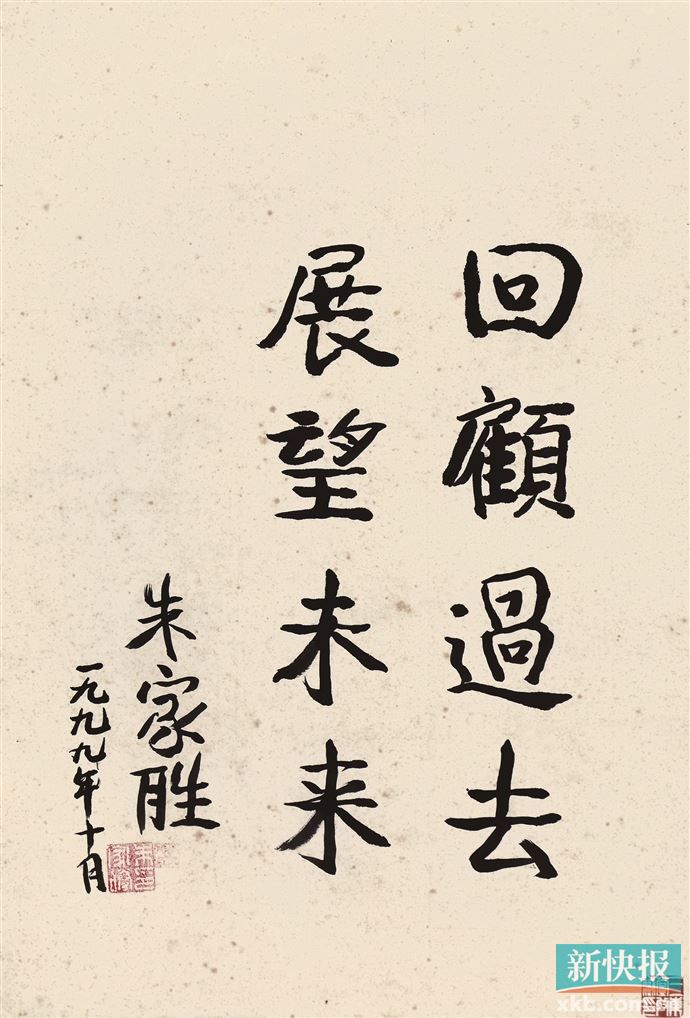 回顧過去
展望未来
朱家胜
一九九九年十月
新快报
xkb.com